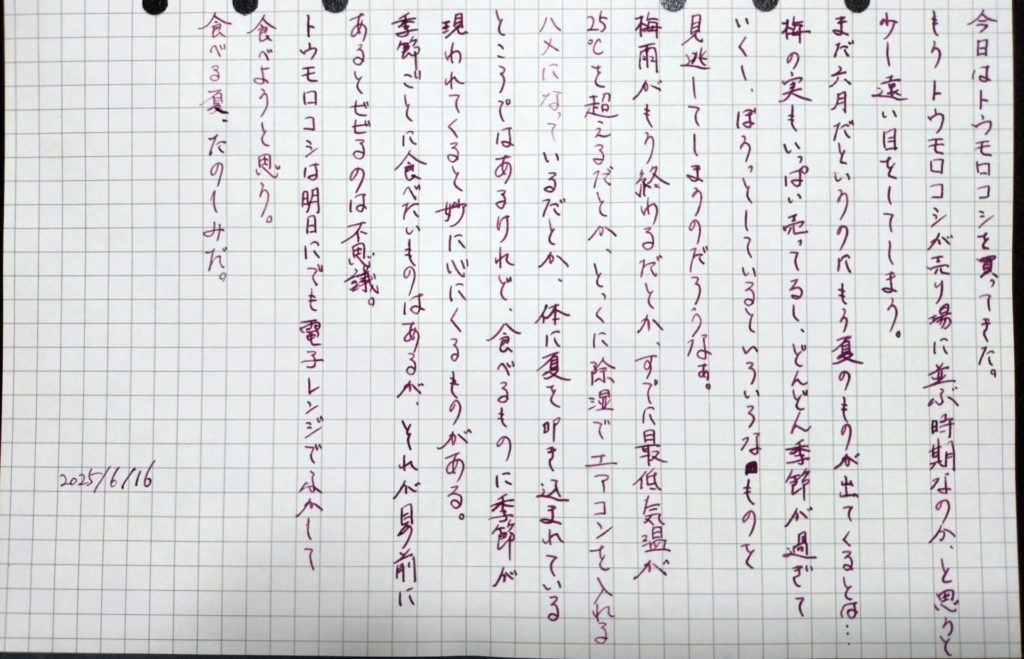 今日はトウモロコシを買ってきた。
もうトウモロコシが売り場に並ぶ時期なのか、と思うと
少し遠い目をしてしまう。
まだ六月だというのにもう夏のものが出てくるとは…
梅の実もいっぱい売ってるし、どんどん季節が過ぎて
いくし、ぼうっとしているといろいろなものを
見逃してしまうのだろうなぁ。
梅雨がもう終わるだとか、すでに最低気温が
25℃を超えるだとか、とっくに除湿でエアコンを入れる
ハメになっているだとか、体に夏を叩き込まれている
ところではあるけれど、食べるものに季節が
現われてくると妙に心にくるものがある。
季節ごとに食べたいものはあるが、それが目の前に
あるとビビるのは不思議。
トウモロコシは明日にでも電子レンジでふかして
食べようと思う。
食べる夏、たのしみだ。
2025/6/16